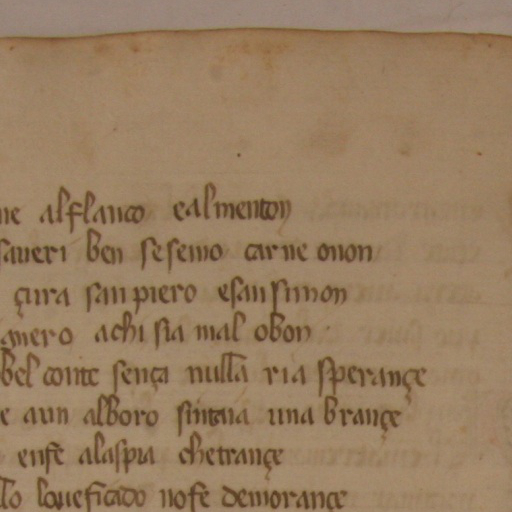 ne al flanco e al menton
saveri ben se semo carne o non
çura san piero e san simon
gnero a chi sia mal o bon
bel conte sença nulla ria sperançe
e a un alboro sin taia una brançe
en fe a la spia che trançe
lo lo veficado no fe demorançe